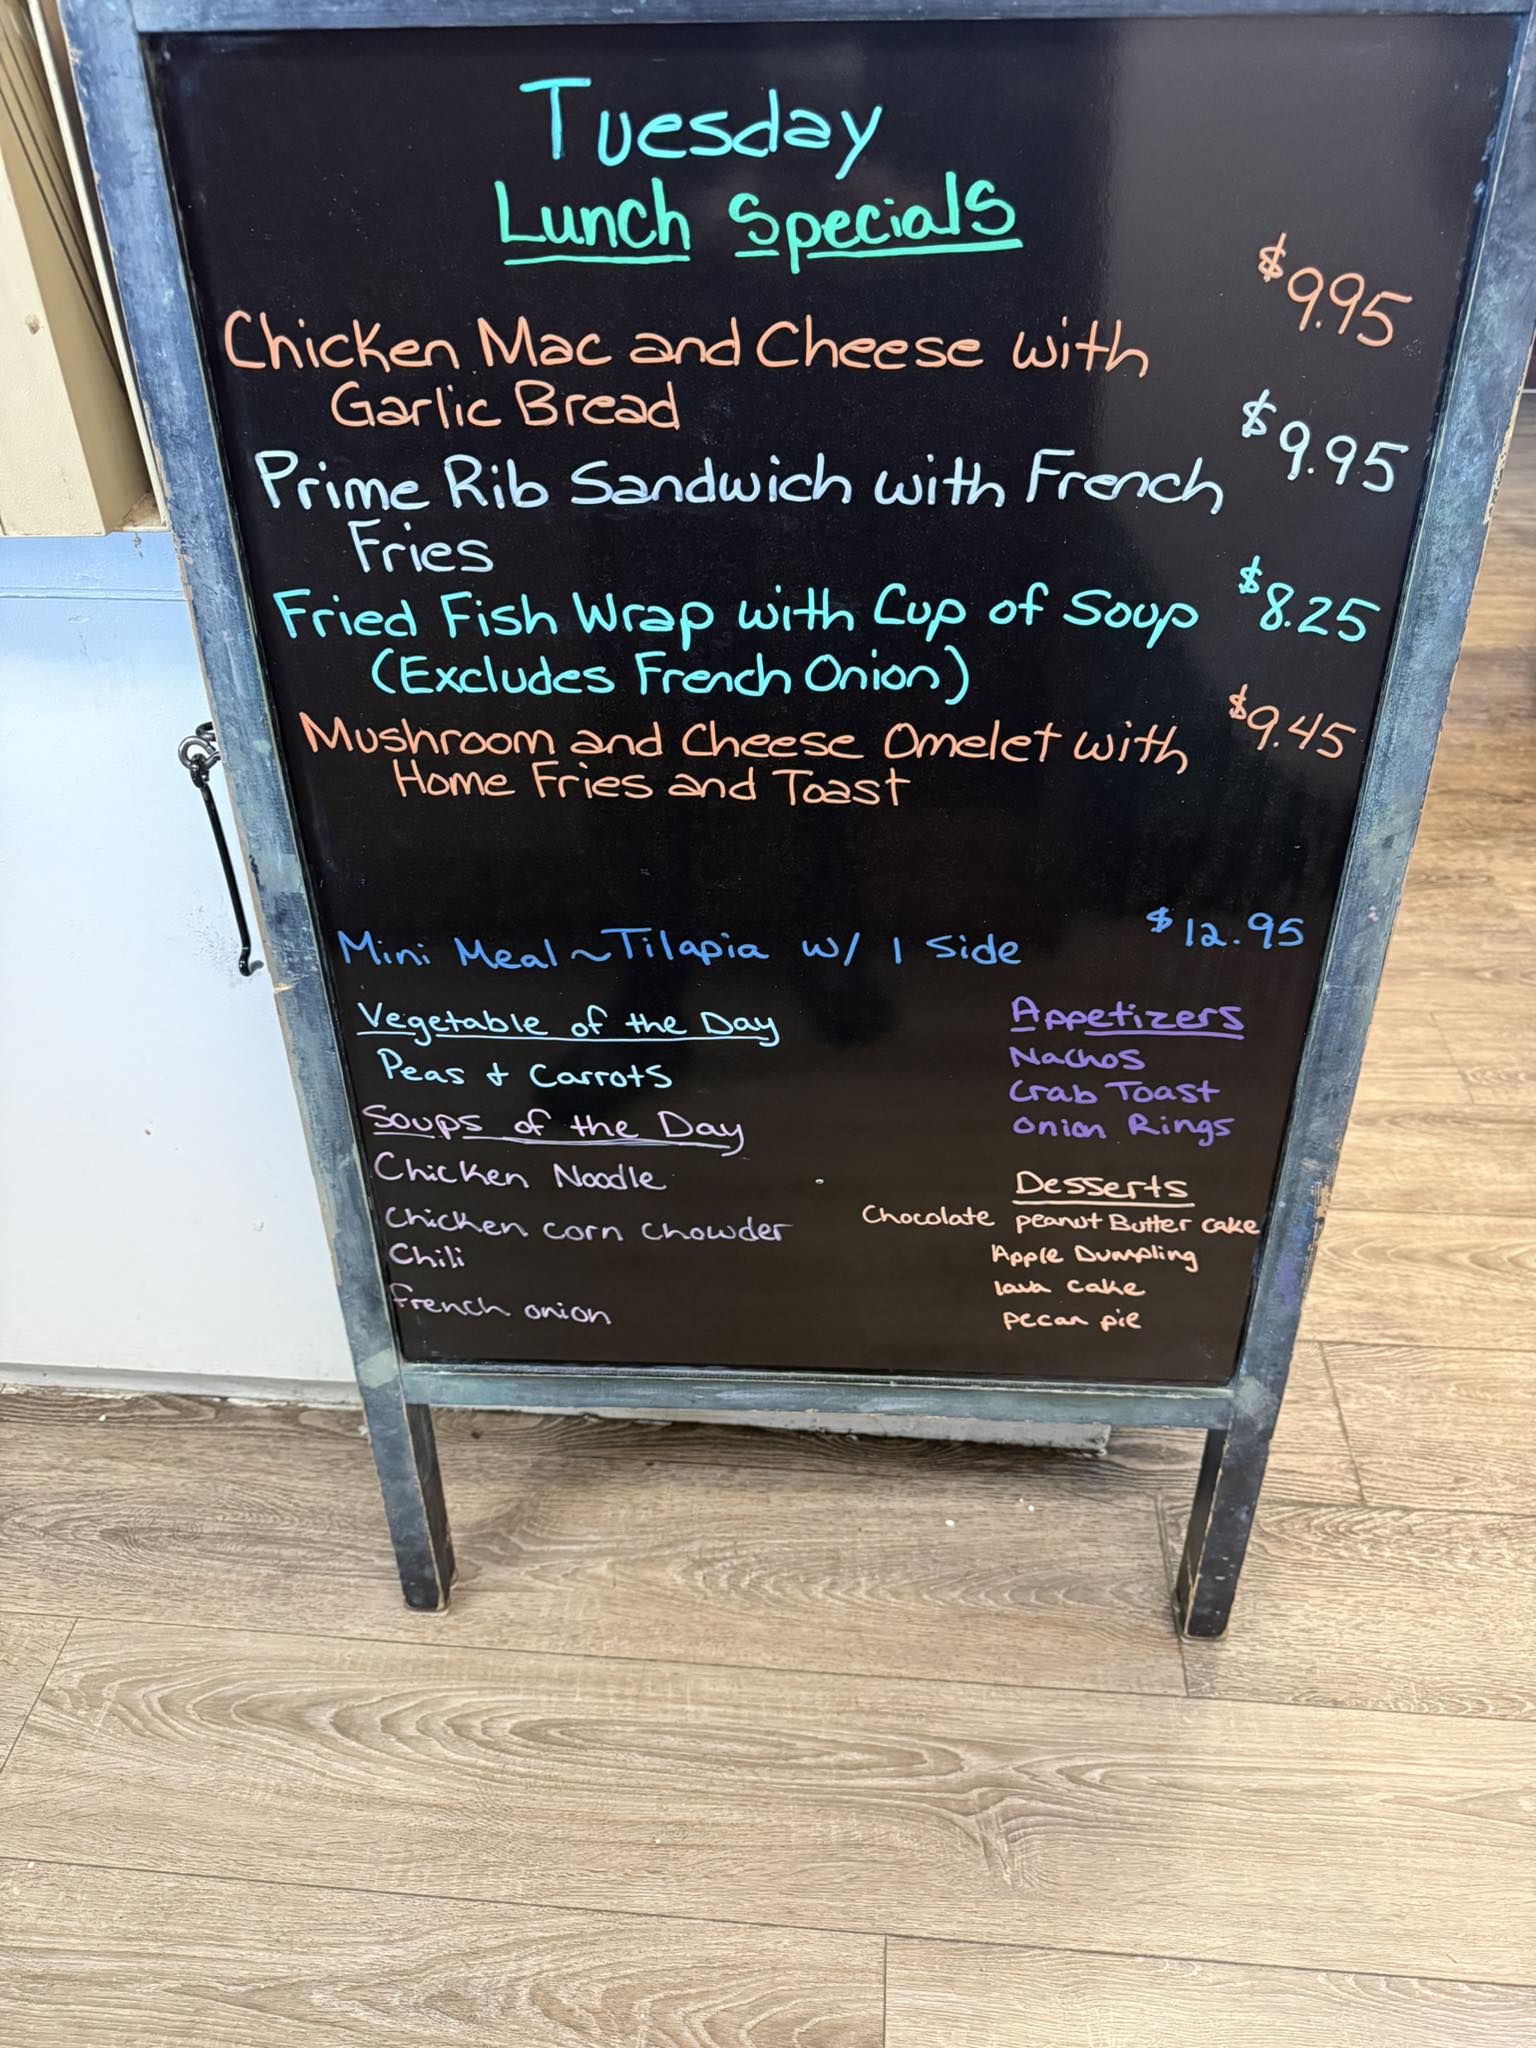 Tuesday
Lunch Specials
Chicken Mac and Cheese with $9.95
Garlic Bread
Prime Rib Sandwich with French $9.95
Fries
Fried Fish Wrap with Cup of Soup $8.25
(Excludes French Onion)
Mushroom and Cheese Omelet with $9.45
Home Fries and Toast
Mini Meal ~ Tilapia w/ 1 Side $12.95
Vegetable of the Day
Peas + Carrots
Soups of the Day
Chicken Noodle
Chicken corn chowder
Chili
french onion
Appetizers
Nachos
Crab Toast
Onion Rings
Desserts
Chocolate peanut Butter cake
Apple Dumpling
lava cake
pecan pie